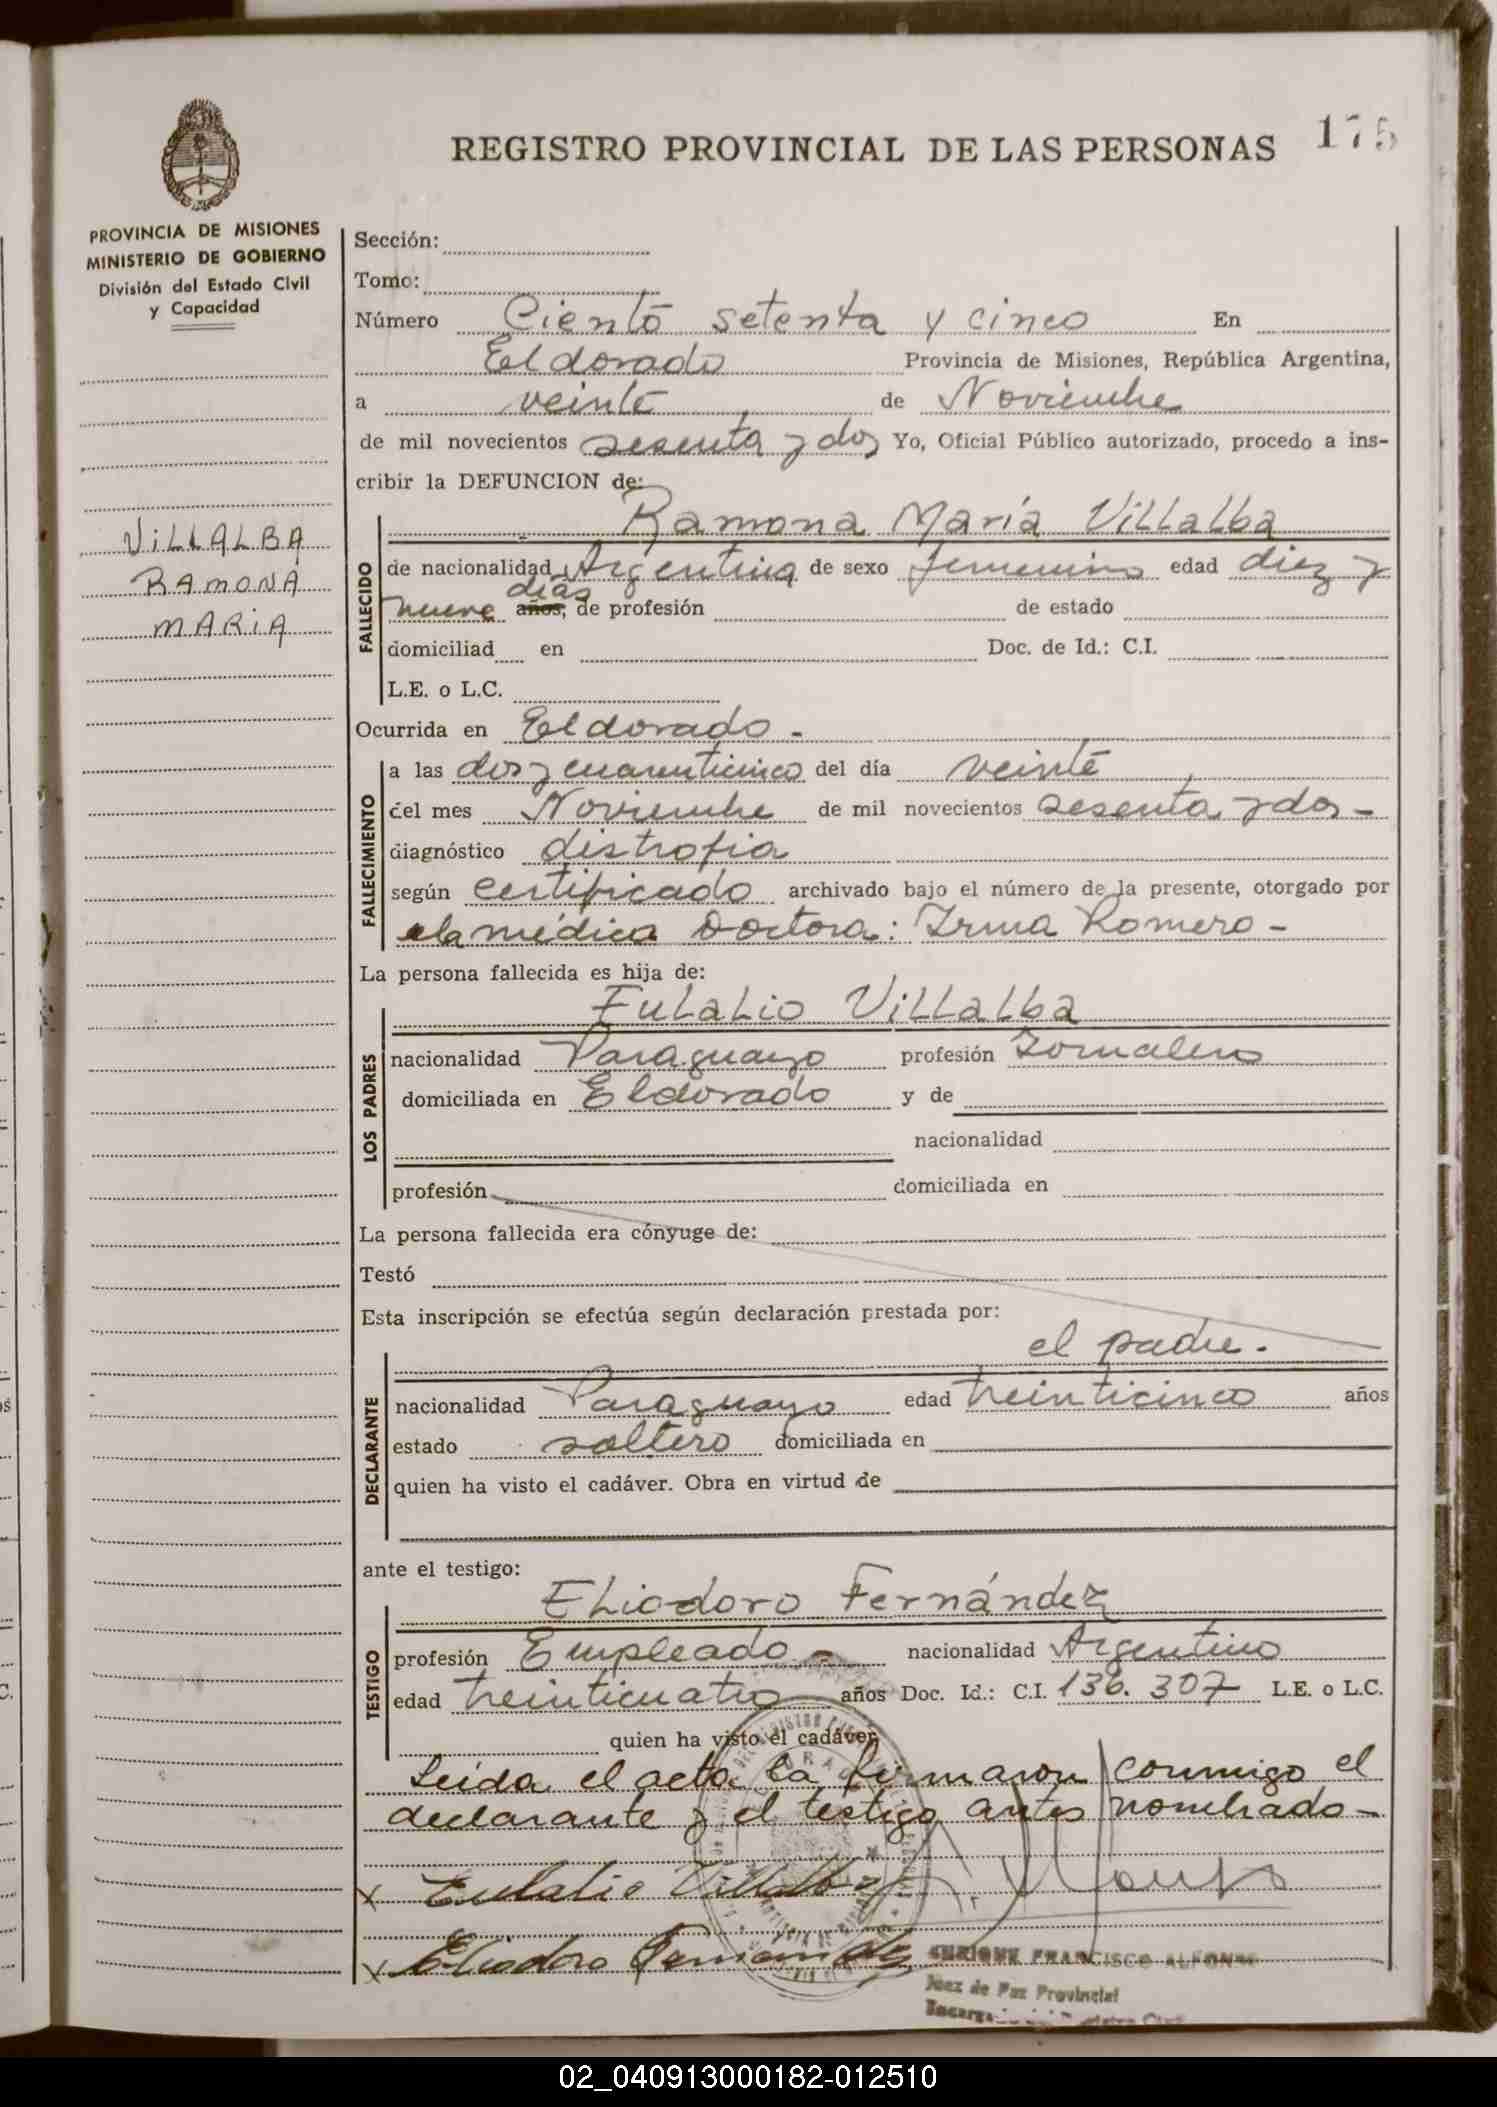 REGISTRO PROVINCIAL DE LAS PERSONAS 175
PROVINCIA DE MISIONES
MINISTERIO DE GOBIERNO
División del Estado Civil
y Capacidad
VILLALBA
RAMONA
MARIA
Sección:
Tomo:
Número Ciento setenta y cinco En
Eldorado Provincia de Misiones, República Argentina,
a veinte de Noviembre
de mil novecientos sesenta y dos Yo, Oficial Público autorizado, procedo a ins-
cribir la DEFUNCION de:
Ramona María Villalba
FALLECIDO
de nacionalidad Argentina de sexo femenino edad diez y
días
nueve años, de profesión de estado
domiciliad en Doc. de Id.: C.I.
L.E. o L.C.
Ocurrida en Eldorado -
FALLECIMIENTO
a las dos y cuarenticinco del día veinte
del mes Noviembre de mil novecientos sesenta y dos -
diagnóstico distrofia
según certificado archivado bajo el número de la presente, otorgado por
la médica Doctora: Irma Romero -
La persona fallecida es hija de:
Eulalio Villalba
LOS PADRES
nacionalidad Paraguayo profesión Jornalero
domiciliada en Eldorado y de
nacionalidad
profesión domiciliada en
La persona fallecida era cónyuge de:
Testó
Esta inscripción se efectúa según declaración prestada por:
el padre.
DECLARANTE
nacionalidad Paraguayo edad treinticinco años
estado soltero domiciliada en
quien ha visto el cadáver. Obra en virtud de
ante el testigo:
Eliodoro Fernández
TESTIGO
profesión Empleado - nacionalidad Argentino
edad treinticuatro años Doc. Id.: C.I. 136.307 L.E. o L.C.
quien ha visto el cadáver
Leída el acta la firmaron conmigo el
declarante y el testigo antes nombrado -
x Eulalio Villalba
x Eliodoro Fernandez
ENRIQUE FRANCISCO ALFONSO
Juez de Paz Provincial
02_040913000182-012510